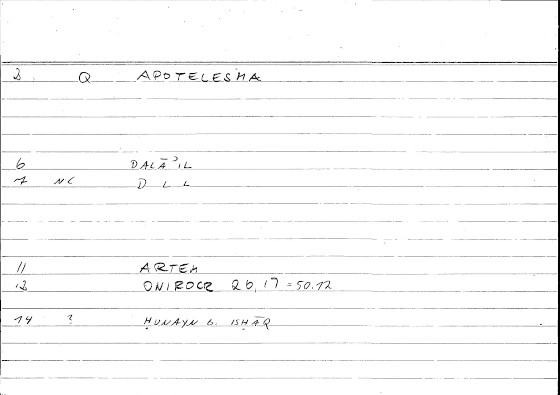 2. Q APOTELESMA
6 DALĀʾIL
7 NC D L L
11 ARTEM
12 ONIROCR 26,17=50.12
14 ? ḤUNAYN b. ISḤĀQ